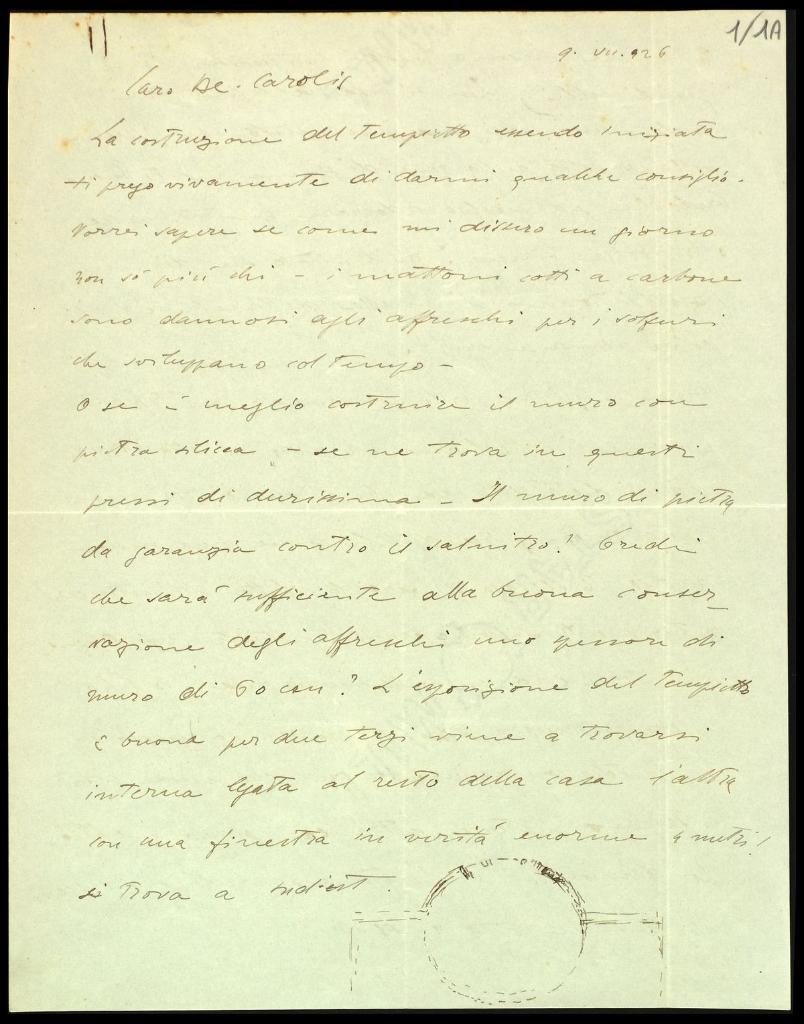 1/1A
9. VII. 926
Caro De. Carolis
La costruzione del Tempietto essendo iniziata
ti prego vivamente di darmi qualche consiglio.
Vorrei sapere se come mi dissero un giorno
non so più chi - i mattoni cotti a carbone
sono dannosi agli affreschi per i solfuri
che sviluppano col tempo -
O se è meglio costruire il muro con
pietra silicea - se ne trova in questi
pressi di durissima - Il muro di pietra
da garanzia contro il salnitro? Credi
che sará sufficiente alla buona conser_
vazione degli affreschi uno spessore di
muro di 60 cm? L'esposizione del Tempietto
è buona per due terzi viene a trovarsi
interna legata al resto della casa l'altra
con una finestra in veritá enorme 4 metri!
si trova a sudest.